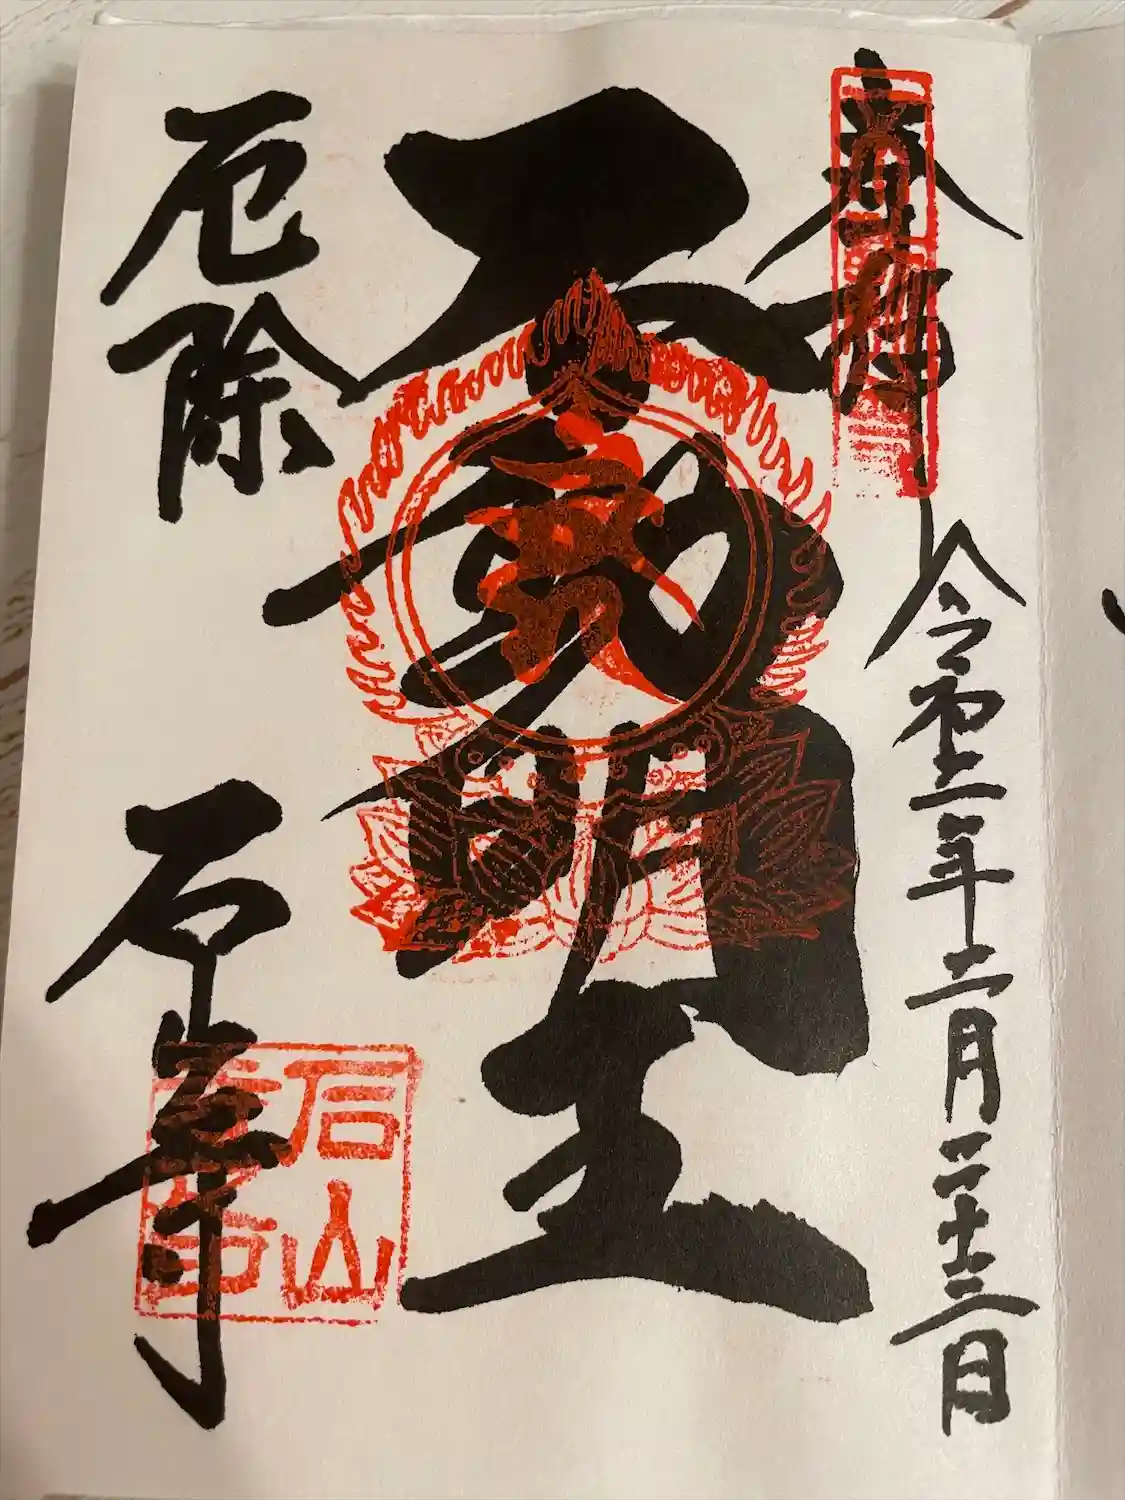 奉拝
令和二年二月二十三日
不動明王
厄除
石山寺
石山
寺印